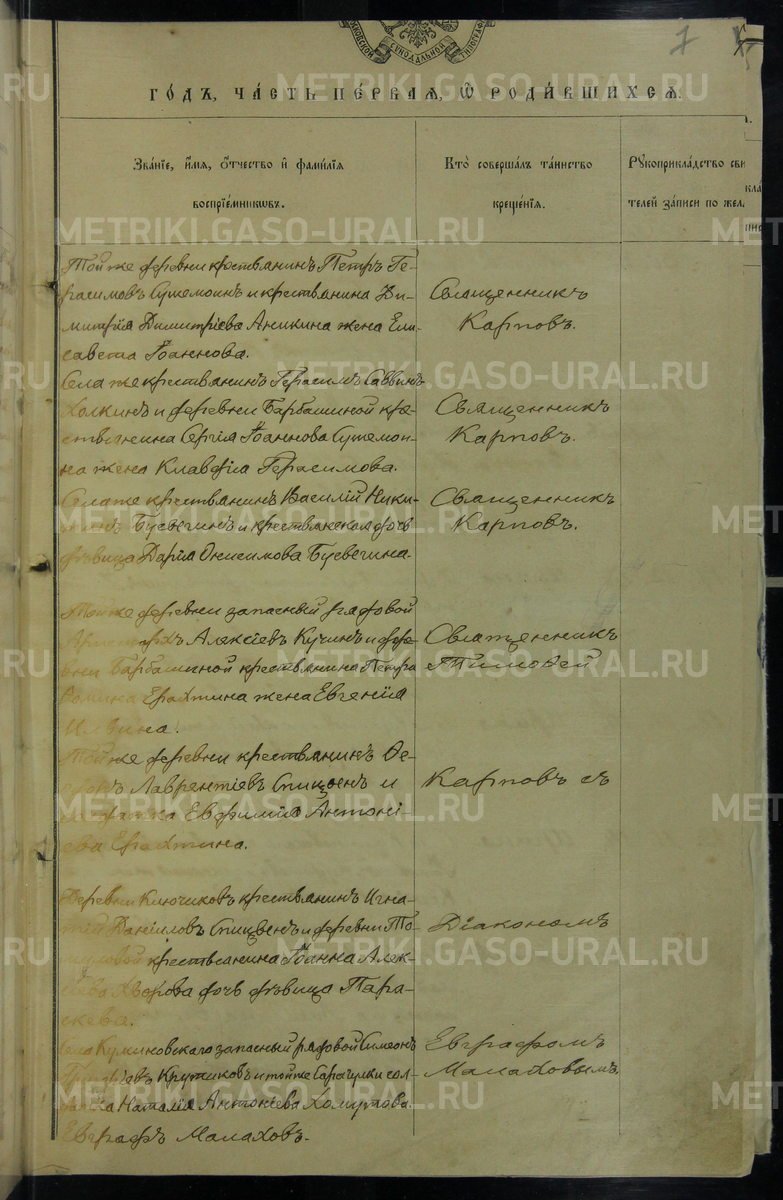 СѴНОДАЛЬНОЙ
7
METRIKI.GASO-URAL.RU
Го́дъ, ча́сть пе́рваѧ, ѡ҆ роди́вшихсѧ.
Зва́нїе, и҆́мѧ, ѻ҆́тчество и҆ фами́лїѧ
воспрїе́мникѡвъ.
Кто̀ соверша́лъ та́инство
креще́нїѧ.
Рꙋкоприкла́дство сви
телей за́писи по жел
Той же деревни крестьянинъ Петръ Ге-
расимовъ Сутемоинъ и крестьянина Ди-
митрія Димитріева Аникина жена Ели-
савета Іоаннова.
Священникъ
Карповъ.
Села же крестьянинъ Герасимъ Саввинъ
Холкинъ и деревни Барбашиной кре-
стьянина Сергія Іоаннова Сутемои-
на жена Клавдія Герасимова.
Священникъ
Карповъ.
Села же крестьянинъ Василій Ники-
тинъ Бусвегинъ и крестьянская дочь
дѣвица Дарія Онисимова Бусвегина
Священникъ
Карповъ.
Той же деревни запасный рядовой
Алексіевъ Кучинъ и дере-
вни Барбашиной крестьянина Петра
Ерахтина жена Евгенія
Священникъ
Тимофей
Той же деревни крестьянинъ Ѳе-
Лаврентіевъ Спицынъ и
Евфимія Антоні-
ева Ерахтина.
Карповъ съ
Деревни Ключиковъ крестьянинъ Игна-
тій Данииловъ Спицынъ и деревни
крестьянина Іоанна Алек-
дочь дѣвица Пара-
скева.
Діакономъ
Села Куликовскаго запасный рядовой Симеонъ
Крутиковъ и той же Сарапулки сол-
датка Наталія Антоніева Хомутова.
Евграфъ Малаховъ.
Евграфомъ
Малаховымъ.